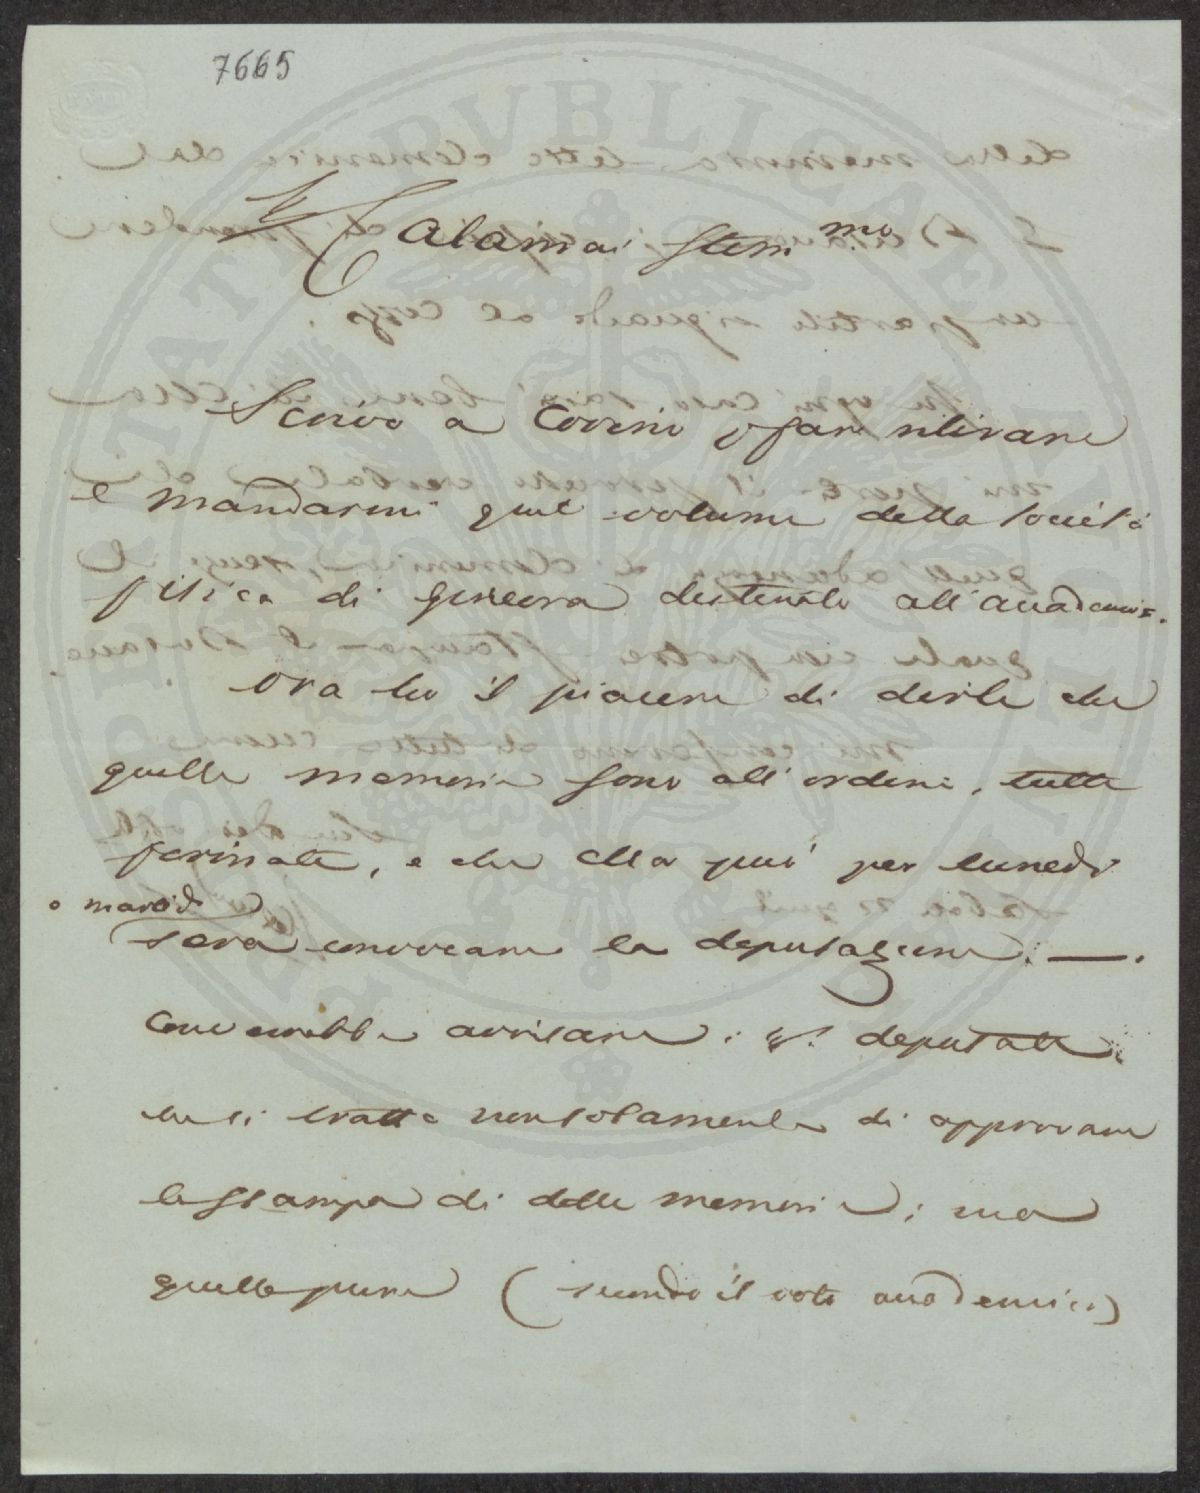 7665
Calamai Stim.mo
Scrivo a Covrini p far ritirare
e mandarmi quel volume della società
fisica di Ginevra destinato all'accademia.
Ora ho il piacere di dirle che
quelle memorie sono all'ordine, tutte
firmate, e che ella può per lunedì
o martedì
sera convocare la deputazione. —.
Converrebbe avvisare i deputati
che si tratta non solamente di approvare
la stampa di delle memorie; ma
quelle pure (secondo il voto accademico)